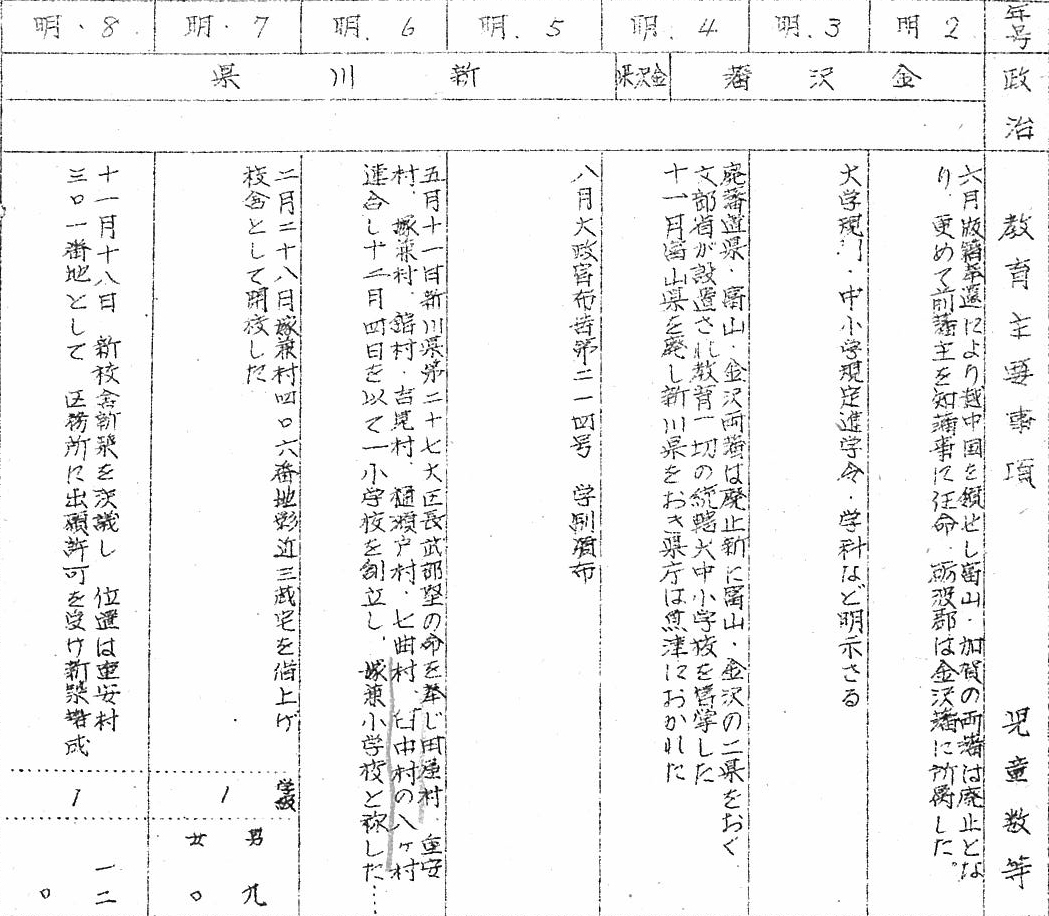 年号
政治
教育主要事項
児童数等
明2
明.3
明.4
明.5
明.6
明.7
明.8
金沢藩
金沢県
新川県
六月版籍奉還により越中国を領せし富山・加賀の両藩は廃止とな
り、更めて前藩主を知藩事に任命・砺波郡は金沢藩に所属した。
大学規則・中小学規定進学令・学科など明示さる
廃藩置県・富山・金沢両藩は廃止新に富山・金沢の二県をおく
文部省が設置され教育一切の統轄大中小学校を管掌した
十一月富山県を廃し新川県をおき県庁は魚津におかれた
八月大政官布告第二一四号 学制頒布
五月十一日新川県第二十七大区長武部堅の命を奉じ田屋村、重安
村、塚兼村、舘村・吉見村、樋瀬戸村、七曲村、臼中村の八ヶ村
連合し十二月四日を以て一小学校を創立し、塚兼小学校と称した…
二月二十八日塚兼村四〇六番地影近三蔵宅を借上げ
校舎として開校した
学級
1
男 九
女 〇
十一月十八日 新校舎新築を決議し 位置は重安村
三〇一番地として 区務所に出願許可を受け新築落成
1
一二
〇